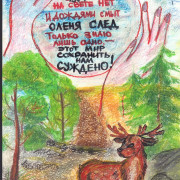 НА СВЕТЕ НЕТ
И ДОЖДЯМИ СМЫТ
ОЛЕНЯ СЛЕД.
ТОЛЬКО ЗНАЮ
ЛИШЬ ОДНО —
ЭТОТ МИР
СОХРАНИТЬ
НАМ
СУЖДЕНО!